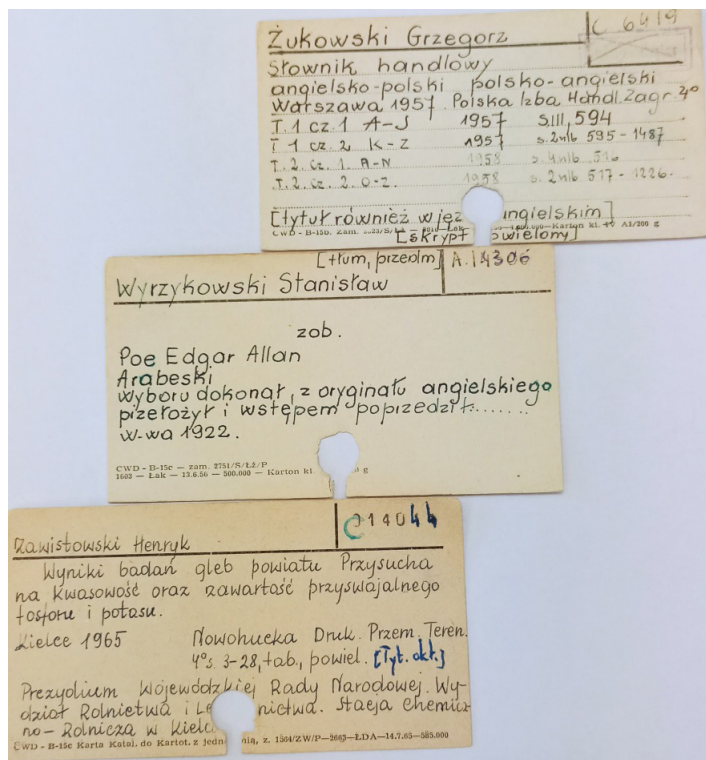 Żukowski Grzegorz
C 6419
Słownik handlowy
angielsko-polski polsko-angielski
Warszawa 1957. Polska Izba Handl. Zagr. 4°
T. 1 cz. 1 A-J 1957 s. III, 594
T 1 cz. 2 K-Z 1957 s. 2nlb 595-1487
T. 2. cz. 1. A-N 1958 s. 4nlb 516
T. 2. cz. 2. O-Z. 1958 s. 2nlb 517-1226.
[tytuł również w jęz angielskim]
[skrypt owielony]
CWD - B-15b. zam. Karton kl. A1/200 g
[tłum, przedm]
A. 14306
Wyrzykowski Stanisław
zob.
Poe Edgar Allan
Arabeski
wyboru dokonał, z oryginału angielskiego
przełożył i wstępem poprzedził.......
W-wa 1922.
CWD - B-15c — zam. 2751/S/LŻ/P
1603 — Łak — 13.6.56 — 500.000 — Karton kl. g
C 14044
Zawistowski Henryk
Wyniki badań gleb powiatu Przysucha
na kwasowość oraz zawartość przyswajalnego
fosforu i potasu.
Kielce 1965 Nowohucka Druk. Przem. Teren.
4° s. 3-28, tab., powiel. [Tyt. okł.]
Prezydium Wojewódzkiej Rady Narodowej. Wy-
dział Rolnictwa i Le nictwa. Stacja Chemicz
no-Rolnicza w Kielc
CWD - B-15c Karta Katal. do Kartot. z jedn nią, z. 1504/ZW/P—2663—ŁDA—14.7.65—585.000